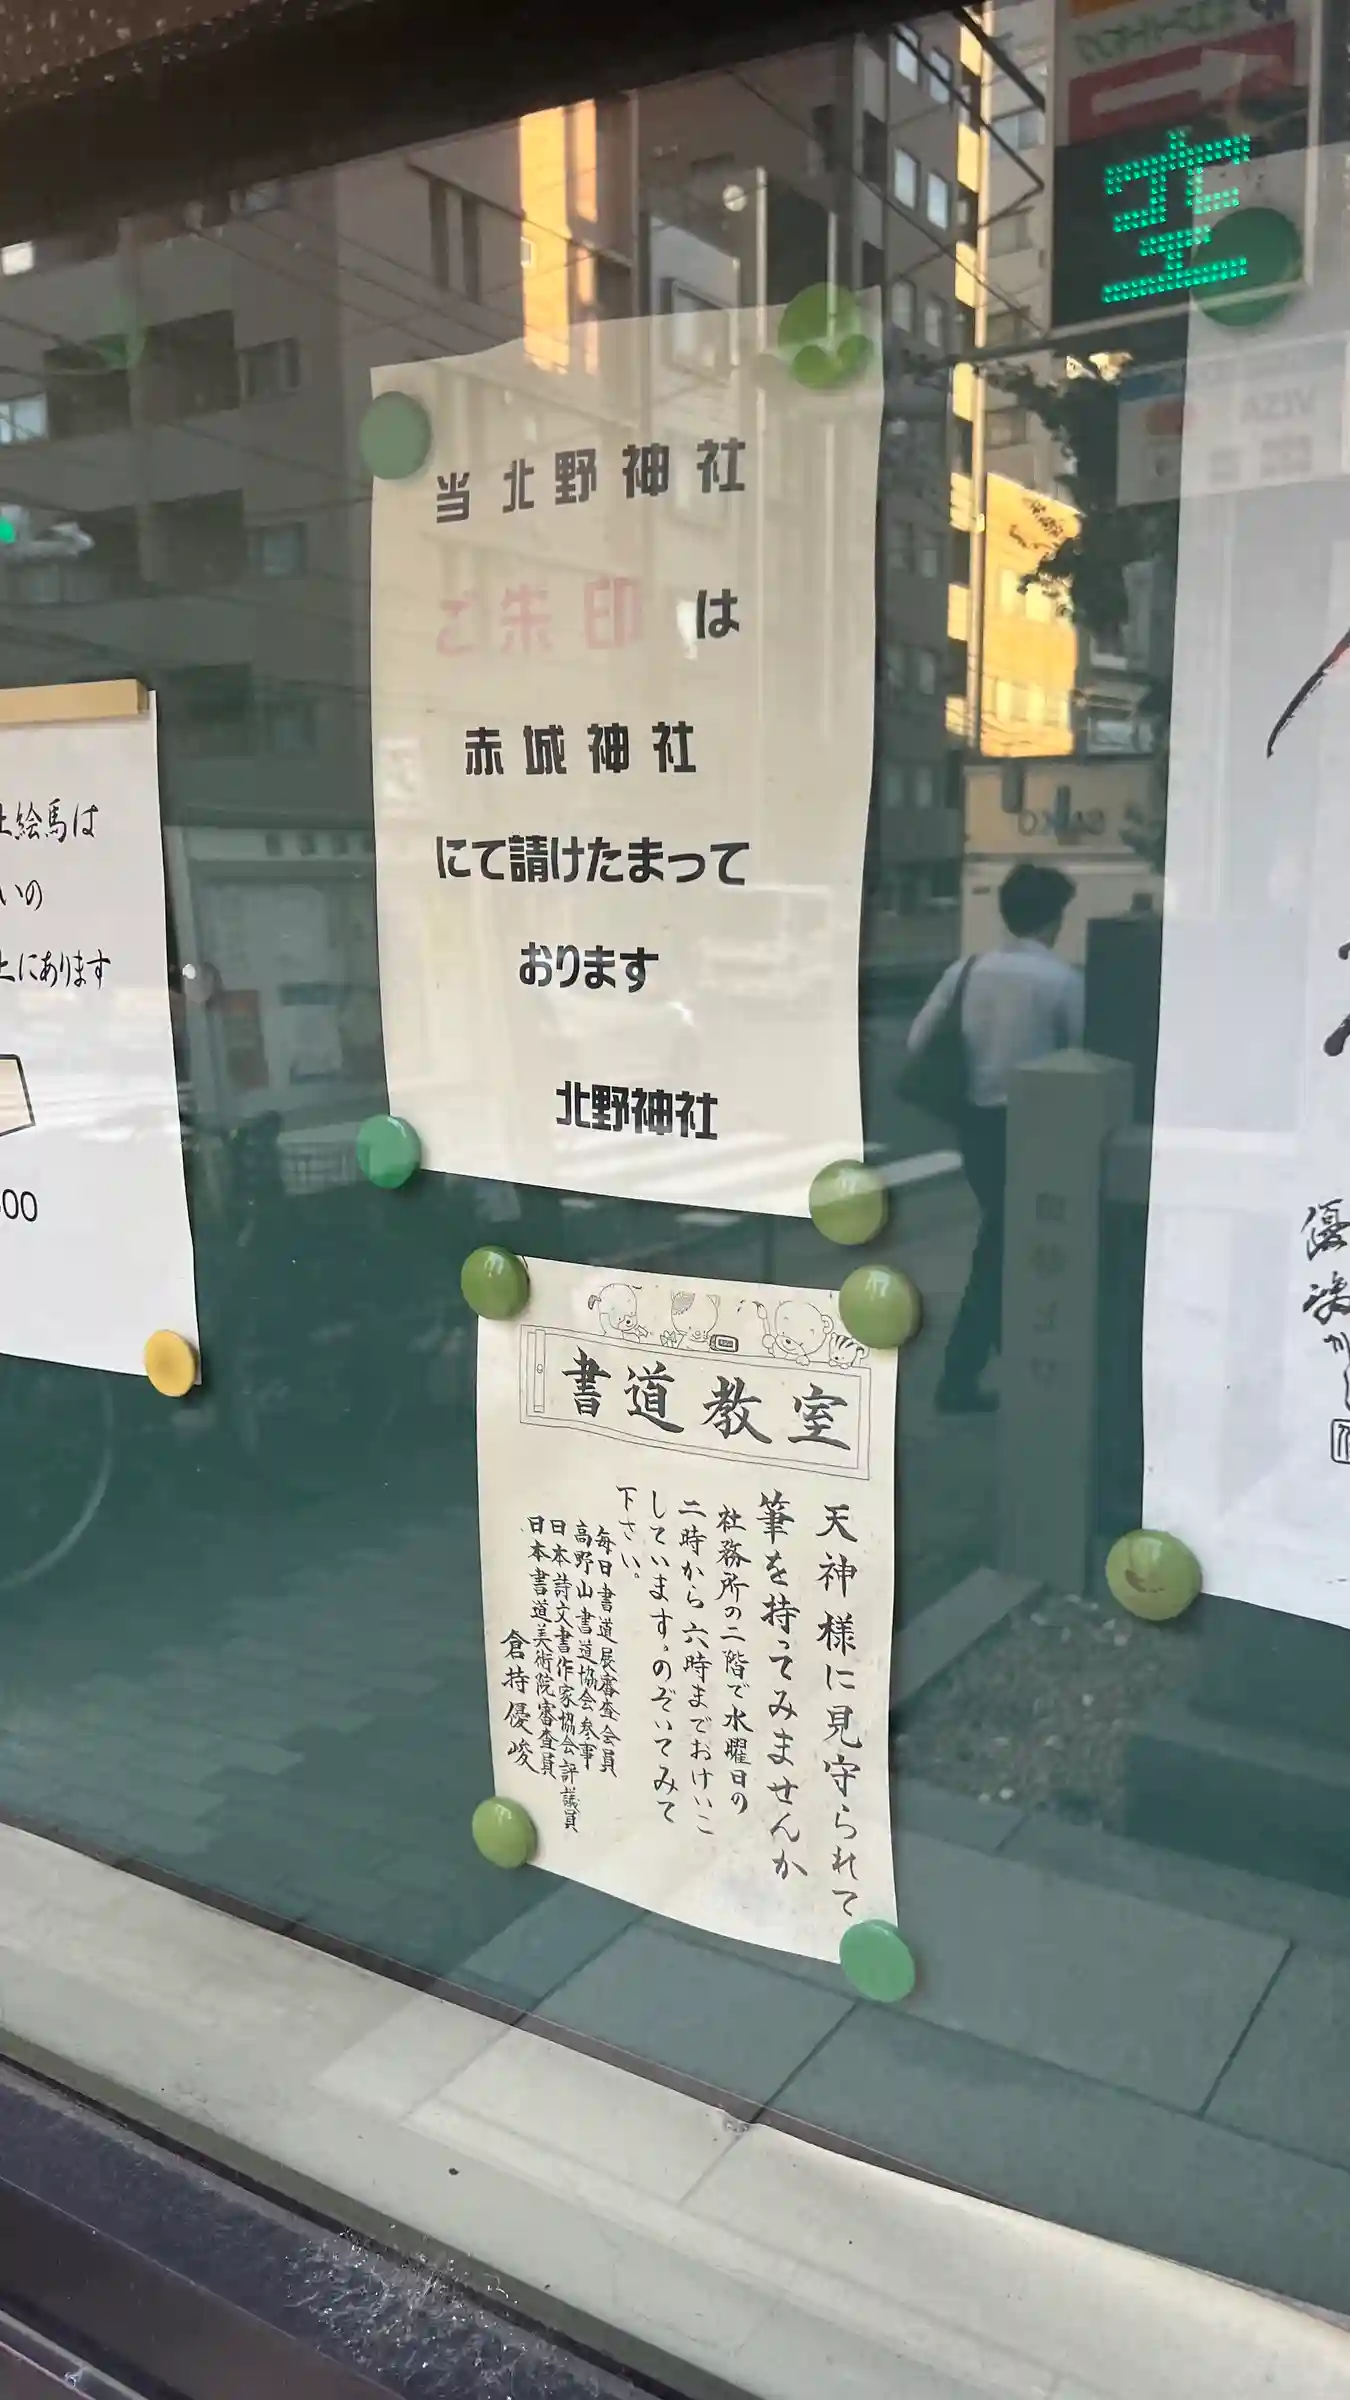 空
当北野神社
ご朱印 は
赤城神社
にて請けたまって
おります
北野神社
絵馬は
いの
にあります
00
書道教室
天神様に見守られて
筆を持ってみませんか
社務所の二階で水曜日の
二時から六時までおけいこ
しています。のぞいてみて
下さい。
毎日書道展審査会員
高野山書道協会参事
日本詩文書作家協会評議員
日本書道美術院審査員
倉持優峻
優
VISA